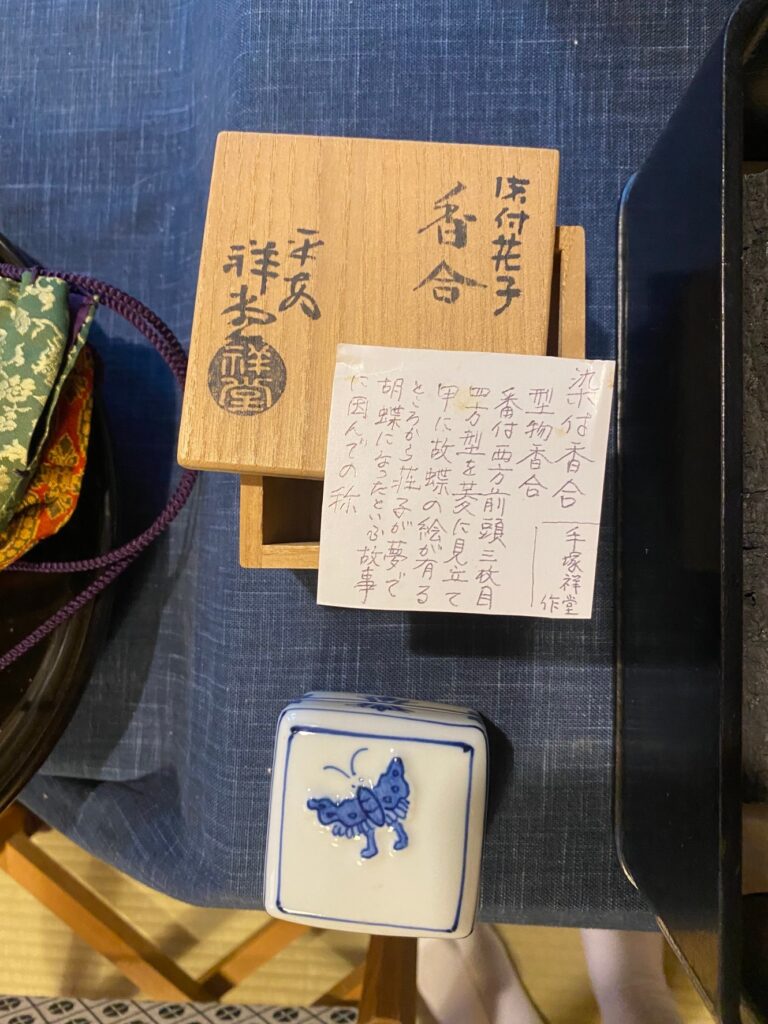 染付荘子
香合
平安
祥堂
祥堂
染付香合
型物香合
番付西方前頭三枚目
四方型を菱に見立て
甲に故蝶の絵が有る
ところから荘子が夢で
胡蝶になったといふ故事
に因んでの称
手塚祥堂
作